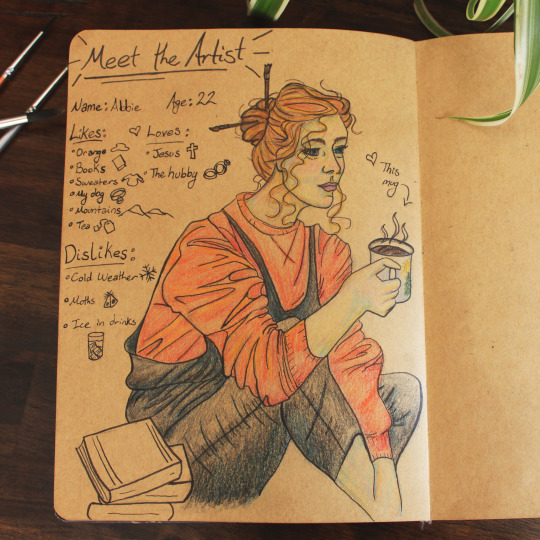 Meet the Artist
Name: Abbie Age: 22
Likes:
• Orange
• Books
• Sweaters
• My dog
• Mountains
• Tea
Loves:
• Jesus
• The hubby
Dislikes:
• Cold Weather
• Moths
• Ice in drinks
This
mug